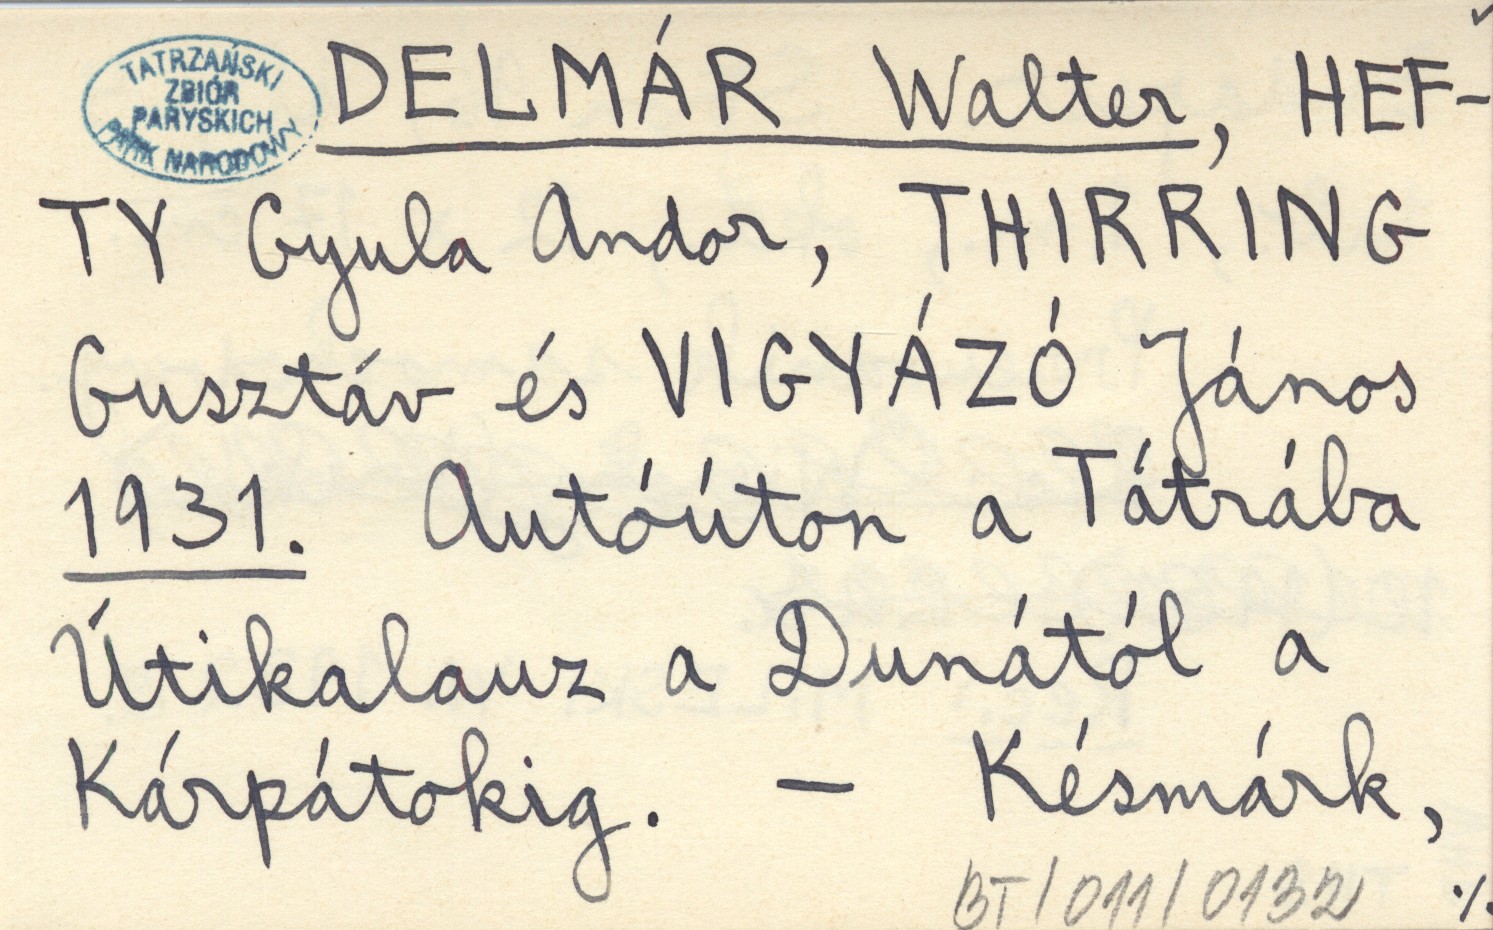 TATRZAŃSKI
ZBIÓR
PARYSKICH
PARK NARODOWY
DELMÁR Walter, HEF-
TY Gyula Andor, THIRRING
Gusztáv és VIGYÁZÓ János
1931. Autóúton a Tátrába
Útikalauz a Dunától a
Kárpátokig. – Késmárk,
BT/011/0132 ./.